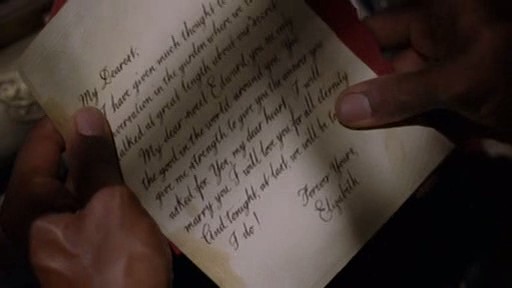 My Dearest,
I have given much thought to
in the garden where we
asked at great length about our
My dear sweet Edward, you see only
the good in the world around you. You
give me strength to give you the answer you
asked for. Yes, my dear heart, I will
marry you. I will love you for all eternity
And tonight, at last, we will be
I do!
Forever Yours,
Elizabeth